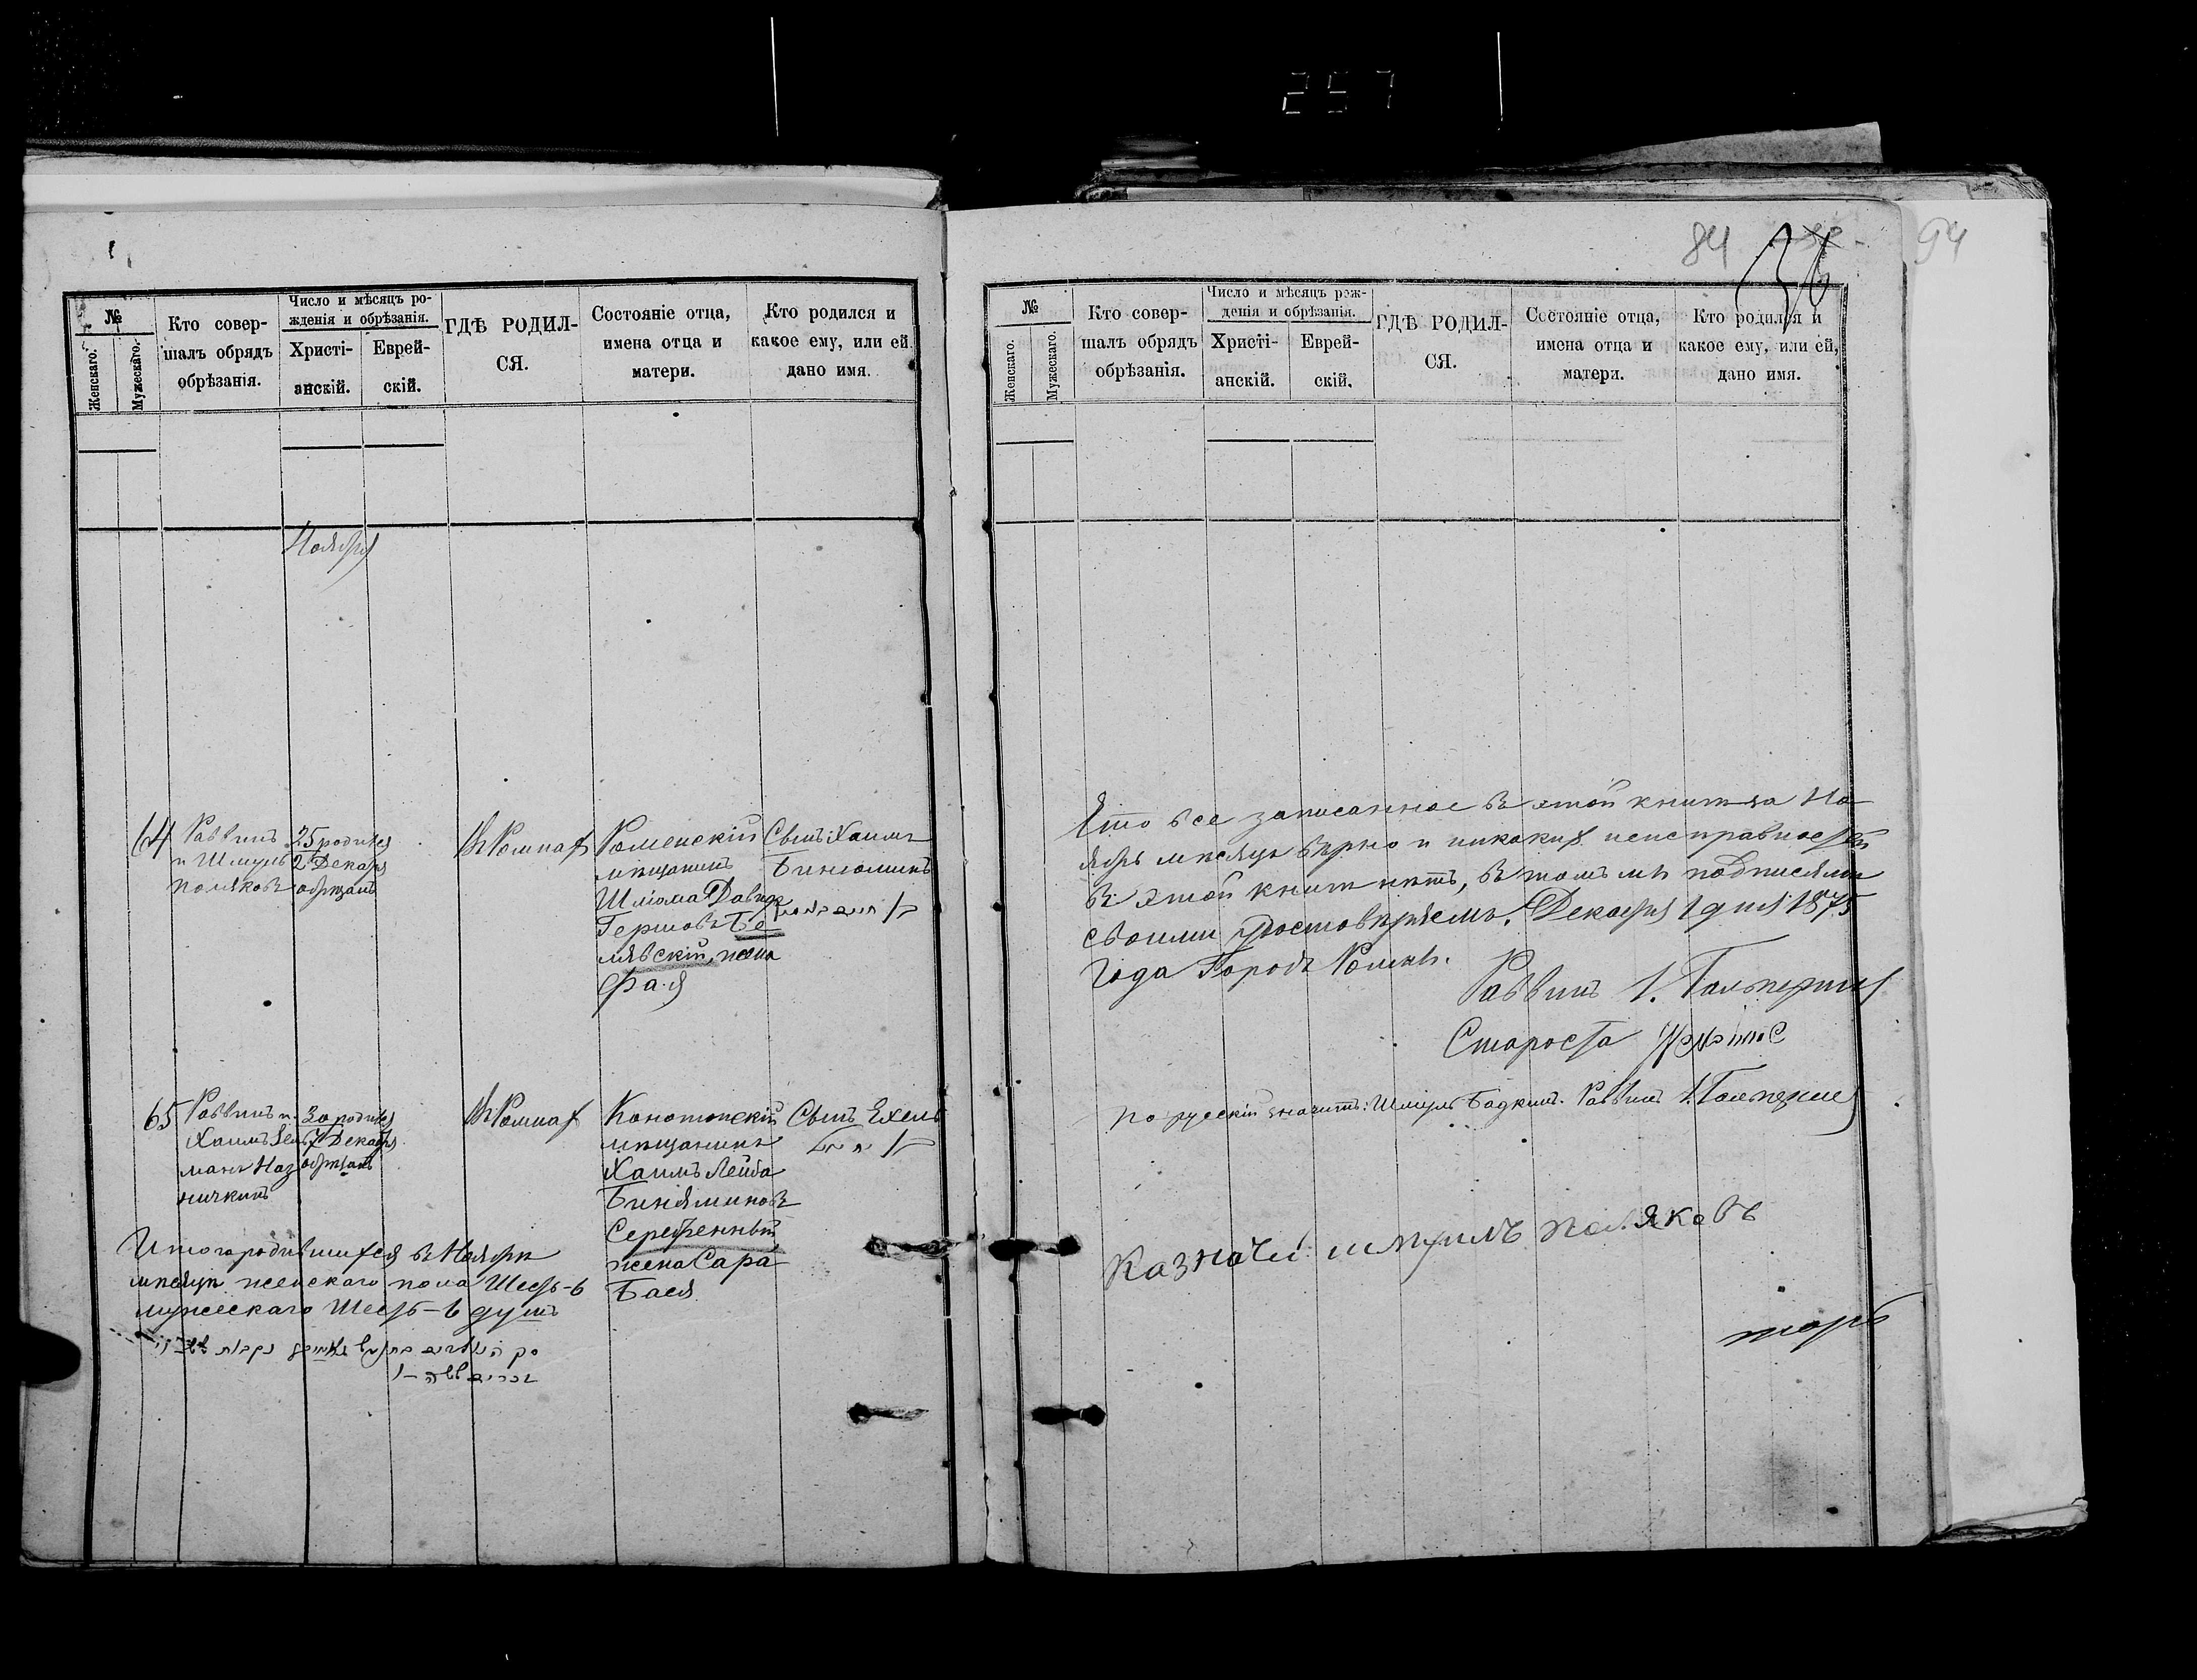 257
№
Женскаго.
Мужескаго.
Кто совер-
шалъ обрядъ
обрѣзанія.
Число и мѣсяцъ ро-
жденія и обрѣзанія.
Христі-
анскій.
Еврей-
скій.
ГДѢ РОДИЛ-
СЯ.
Состояніе отца,
имена отца и
матери.
Кто родился и
какое ему, или ей
дано имя.
Ноября
64
Раввинъ
и Шмуль
Поляковъ
25 родился
2 Декабря
обрѣзанъ
Въ Ромнах
Роменскій
мѣщанинъ
Шліома Давид
Гершовъ Бе
лявскій, жена
Фа
Сынъ Хаимъ
Биніоминъ
65
Раввинъ и
Хаимъ Зел
манъ Наз
ничкинъ
30 родился
7 Декабря
обрѣзанъ
Въ Ромнах
Конотопскій
мѣщанинъ
Хаимъ Лейба
Биняминовъ
жена Сара
Бася
Сынъ Ехель
Итого родившихся въ Ноябрѣ
мѣсяцѣ женскаго пола Шесть – 6
мужескаго Шесть – 6 душъ
84
36
94
№
Женскаго.
Мужескаго.
Кто совер-
шалъ обрядъ
обрѣзанія.
Число и мѣсяцъ рож-
денія и обрѣзанія.
Христі-
анскій.
Еврей-
скій.
ГДѢ РОДИЛ-
СЯ.
Состояніе отца,
имена отца и
матери.
Кто родился и
какое ему, или ей,
дано имя.
Что все записанное въ этой книгѣ за Но
ябрь мѣсяцъ вѣрно и никаких неисправностей
въ этой книгѣ нѣтъ, въ томъ мы подписями
своими удостовѣряемъ. Декабря 1 дня 1875
года Городъ Ромны.
Раввинъ І. Гальперинъ
Староста
По русскій значитъ: Шмуль Бадкинъ. Раввинъ І. Гальперин
Казначей шмуиль поляковъ